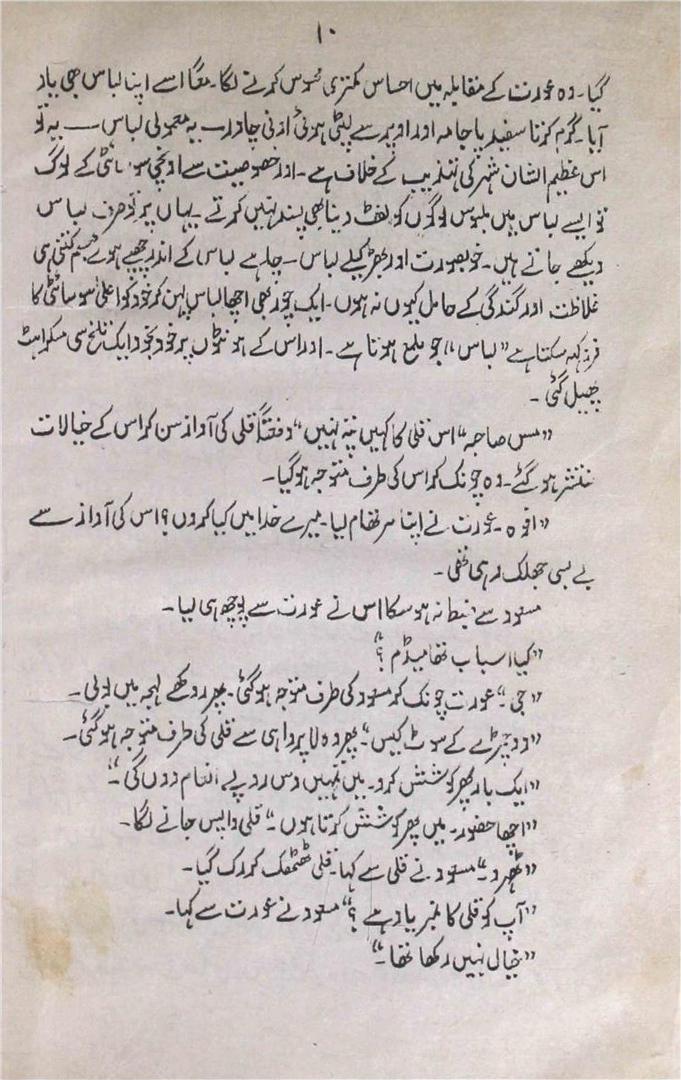 ۱۰
گیا۔ وہ عورت کے مقابلہ میں احساس کمتری محسوس کرنے لگا۔ معاً اسے اپنا لباس بھی یاد
آیا۔ گرم کرتا سفید پاجامہ اور اوپر سے لپٹی ہوئی اونی چادر۔ یہ معمولی لباس — یہ تو
اس عظیم الشان شہر کی تہذیب کے خلاف ہے۔ اور خصوصیت سے اونچی سوسائٹی کے لوگ
تو ایسے لباس میں ملبوس لوگوں کو لفٹ دینا بھی پسند نہیں کرتے۔ یہاں پر تو صرف لباس
دیکھے جاتے ہیں۔ خوبصورت اور بھڑکیلے لباس — چاہے لباس کے اندر چھپے ہوئے جسم کتنی ہی
غلاظت اور گندگی کے حامل کیوں نہ ہوں۔ ایک چور بھی اچھا لباس پہن کر خود کو اعلیٰ سوسائٹی کا
فرد کہہ سکتا ہے "لباس" جو ملمع ہوتا ہے۔ اور اس کے ہونٹوں پر خود بخود ایک تلخ سی مسکراہٹ
پھیل گئی۔
"مس صاحبہ" اس قلی کا کہیں پتہ نہیں" دفعتاً قلی کی آواز سن کر اس کے خیالات
منتشر ہو گئے۔ وہ چونک کر اس کی طرف متوجہ ہو گیا۔
"افوہ۔ عورت نے اپنا سر تھام لیا۔ میرے خدا میں کیا کروں؟ اس کی آواز سے
بے بسی جھلک رہی تھی۔
مسعود سے ضبط نہ ہو سکا اس نے عورت سے پوچھ ہی لیا۔
"کیا اسباب تھا میڈم؟"
"جی۔" عورت چونک کر مسعود کی طرف متوجہ ہو گئی۔ پھر روکھے لہجہ میں بولی۔
"دو چمڑے کے سوٹ کیس" پھر وہ لاپرواہی سے قلی کی طرف متوجہ ہو گئی۔
"ایک بار پھر کوشش کرو۔ میں تمہیں دس روپے انعام دوں گی۔"
"اچھا حضور۔ میں پھر کوشش کرتا ہوں۔" قلی واپس جانے لگا۔
"ٹھہرو۔" مسعود نے قلی سے کہا۔ قلی ٹھٹھک کر رک گیا۔
"آپ کو قلی کا نمبر یاد ہے؟" مسعود نے عورت سے کہا۔
"خیال نہیں رکھا تھا۔"